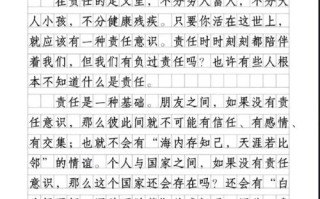 在责任的定义里，不分穷人富人，不分大
人小孩，不分健康残疾。只要你活在这世上，
就应该有一种责任意识。责任时时刻刻都陪伴
着我们，但我们有负过责任吗？也许有些人根
本不知道什么是责任。
责任是一种基础。朋友之间，如果没有责
任意识，那么彼此间就不可能有信任、有感情、
有交集；也就不会有“海内存知己，天涯若比
邻”的情谊。个人与国家之间，如果没有责任
意识，那么这个国家还会存在吗？还会有“白